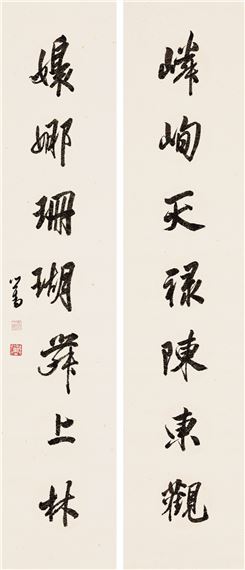 嶙峋天祿陳東觀
嬝娜珊瑚舞上林
心畬